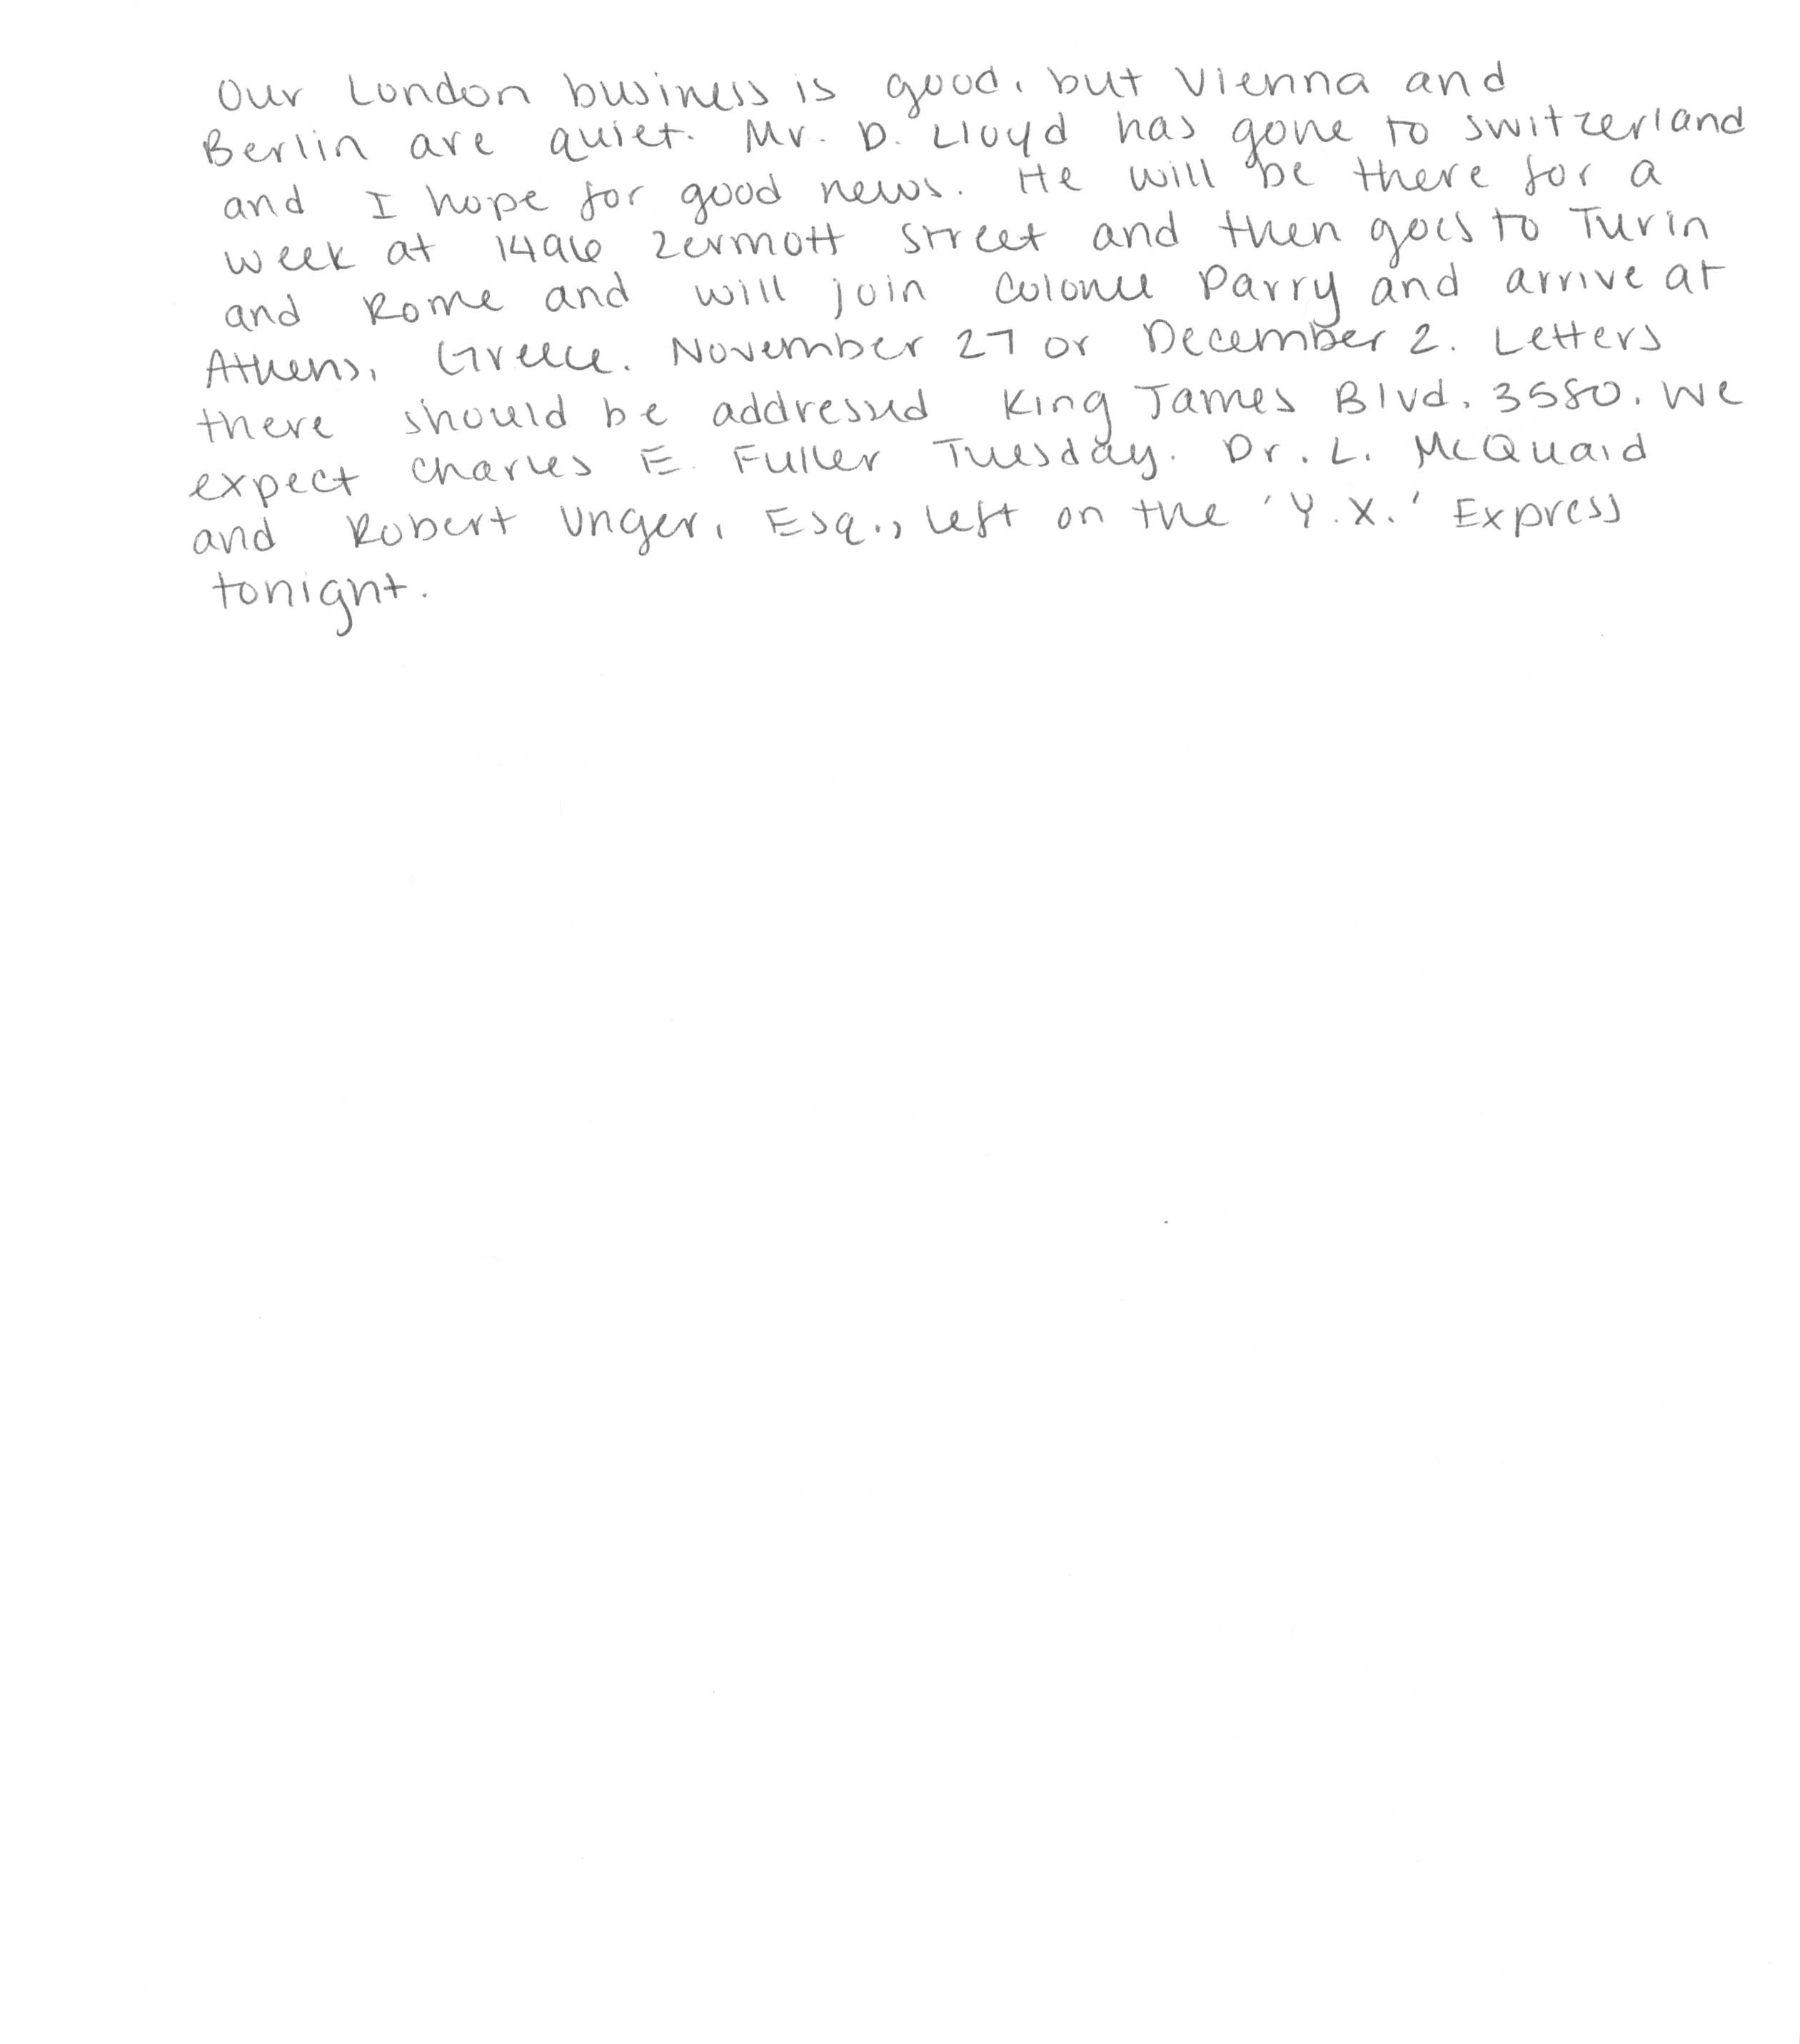 Our London business is good, but Vienna and
Berlin are quiet. Mr. D. Lloyd has gone to Switzerland
and I hope for good news. He will be there for a
week at 1496 Zermott Street and then goes to Turin
and Rome and will join Colonel Parry and arrive at
Athens, Greece. November 27 or December 2. Letters
there should be addressed King James Blvd. 3580. We
expect Charles E. Fuller Tuesday. Dr. L. McQuaid
and Robert Unger, Esq., left on the 'Y.X.' Express
tonight.